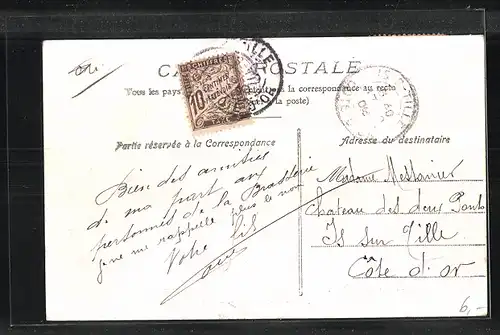 CARTE POSTALE
Tous les pays étrangers n'acceptent pas la correspondance au recto
la poste)
Partie réservée à la Correspondance
Adresse du destinataire
CHIFFRE
10
CENTIMES
À PERCEVOIR
Bien des amitiés
de ma part aux
personnes de la Brasserie
je ne me rappelle plus le nom
Votre fils
Louis
Madame Mestanier
Chateau des deux Ponts
Is sur Tille
Côte d'or
6,-